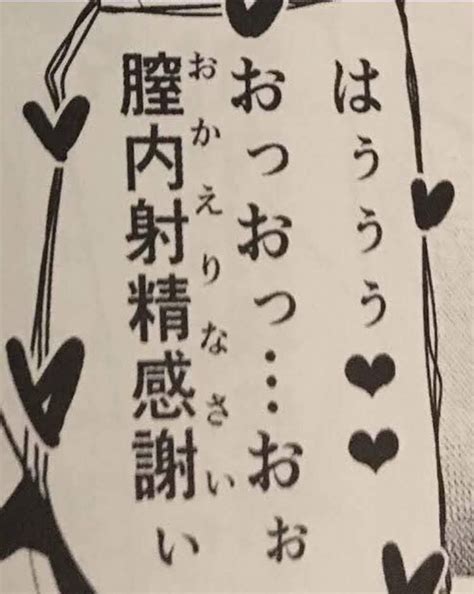 はううう♥♥
おっおっ…おぉ
膣内射精感謝ぃ
おかえりなさい